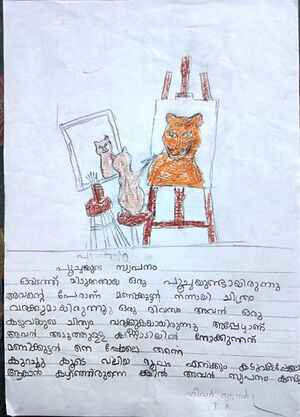 പൂച്ചയുടെ സ്വപ്നം
ഒരിടത്ത് മിടുക്കനായ ഒരു പൂച്ചയുണ്ടായിരുന്നു
അവന്റെ പേരാണ് മണിക്കുട്ടൻ നന്നായി ചിത്രം
വരക്കുമായിരുന്നു ഒരു ദിവസം അവൻ ഒരു
കടുവയുടെ ചിത്രം വരക്കുകയായിരുന്നു അപ്പോഴാണ്
അവൻ അടുത്തുള്ള കണ്ണാടിയിൽ നോക്കുന്നത്
മണിക്കുട്ടൻ തന്നെ
കുറച്ചു കൂടെ വലിയ എനിക്കും
ആകാൻ കഴിഞ്ഞിരുന്നെ ങ്കിൽ അവൻ സ്വപ്നം
I A